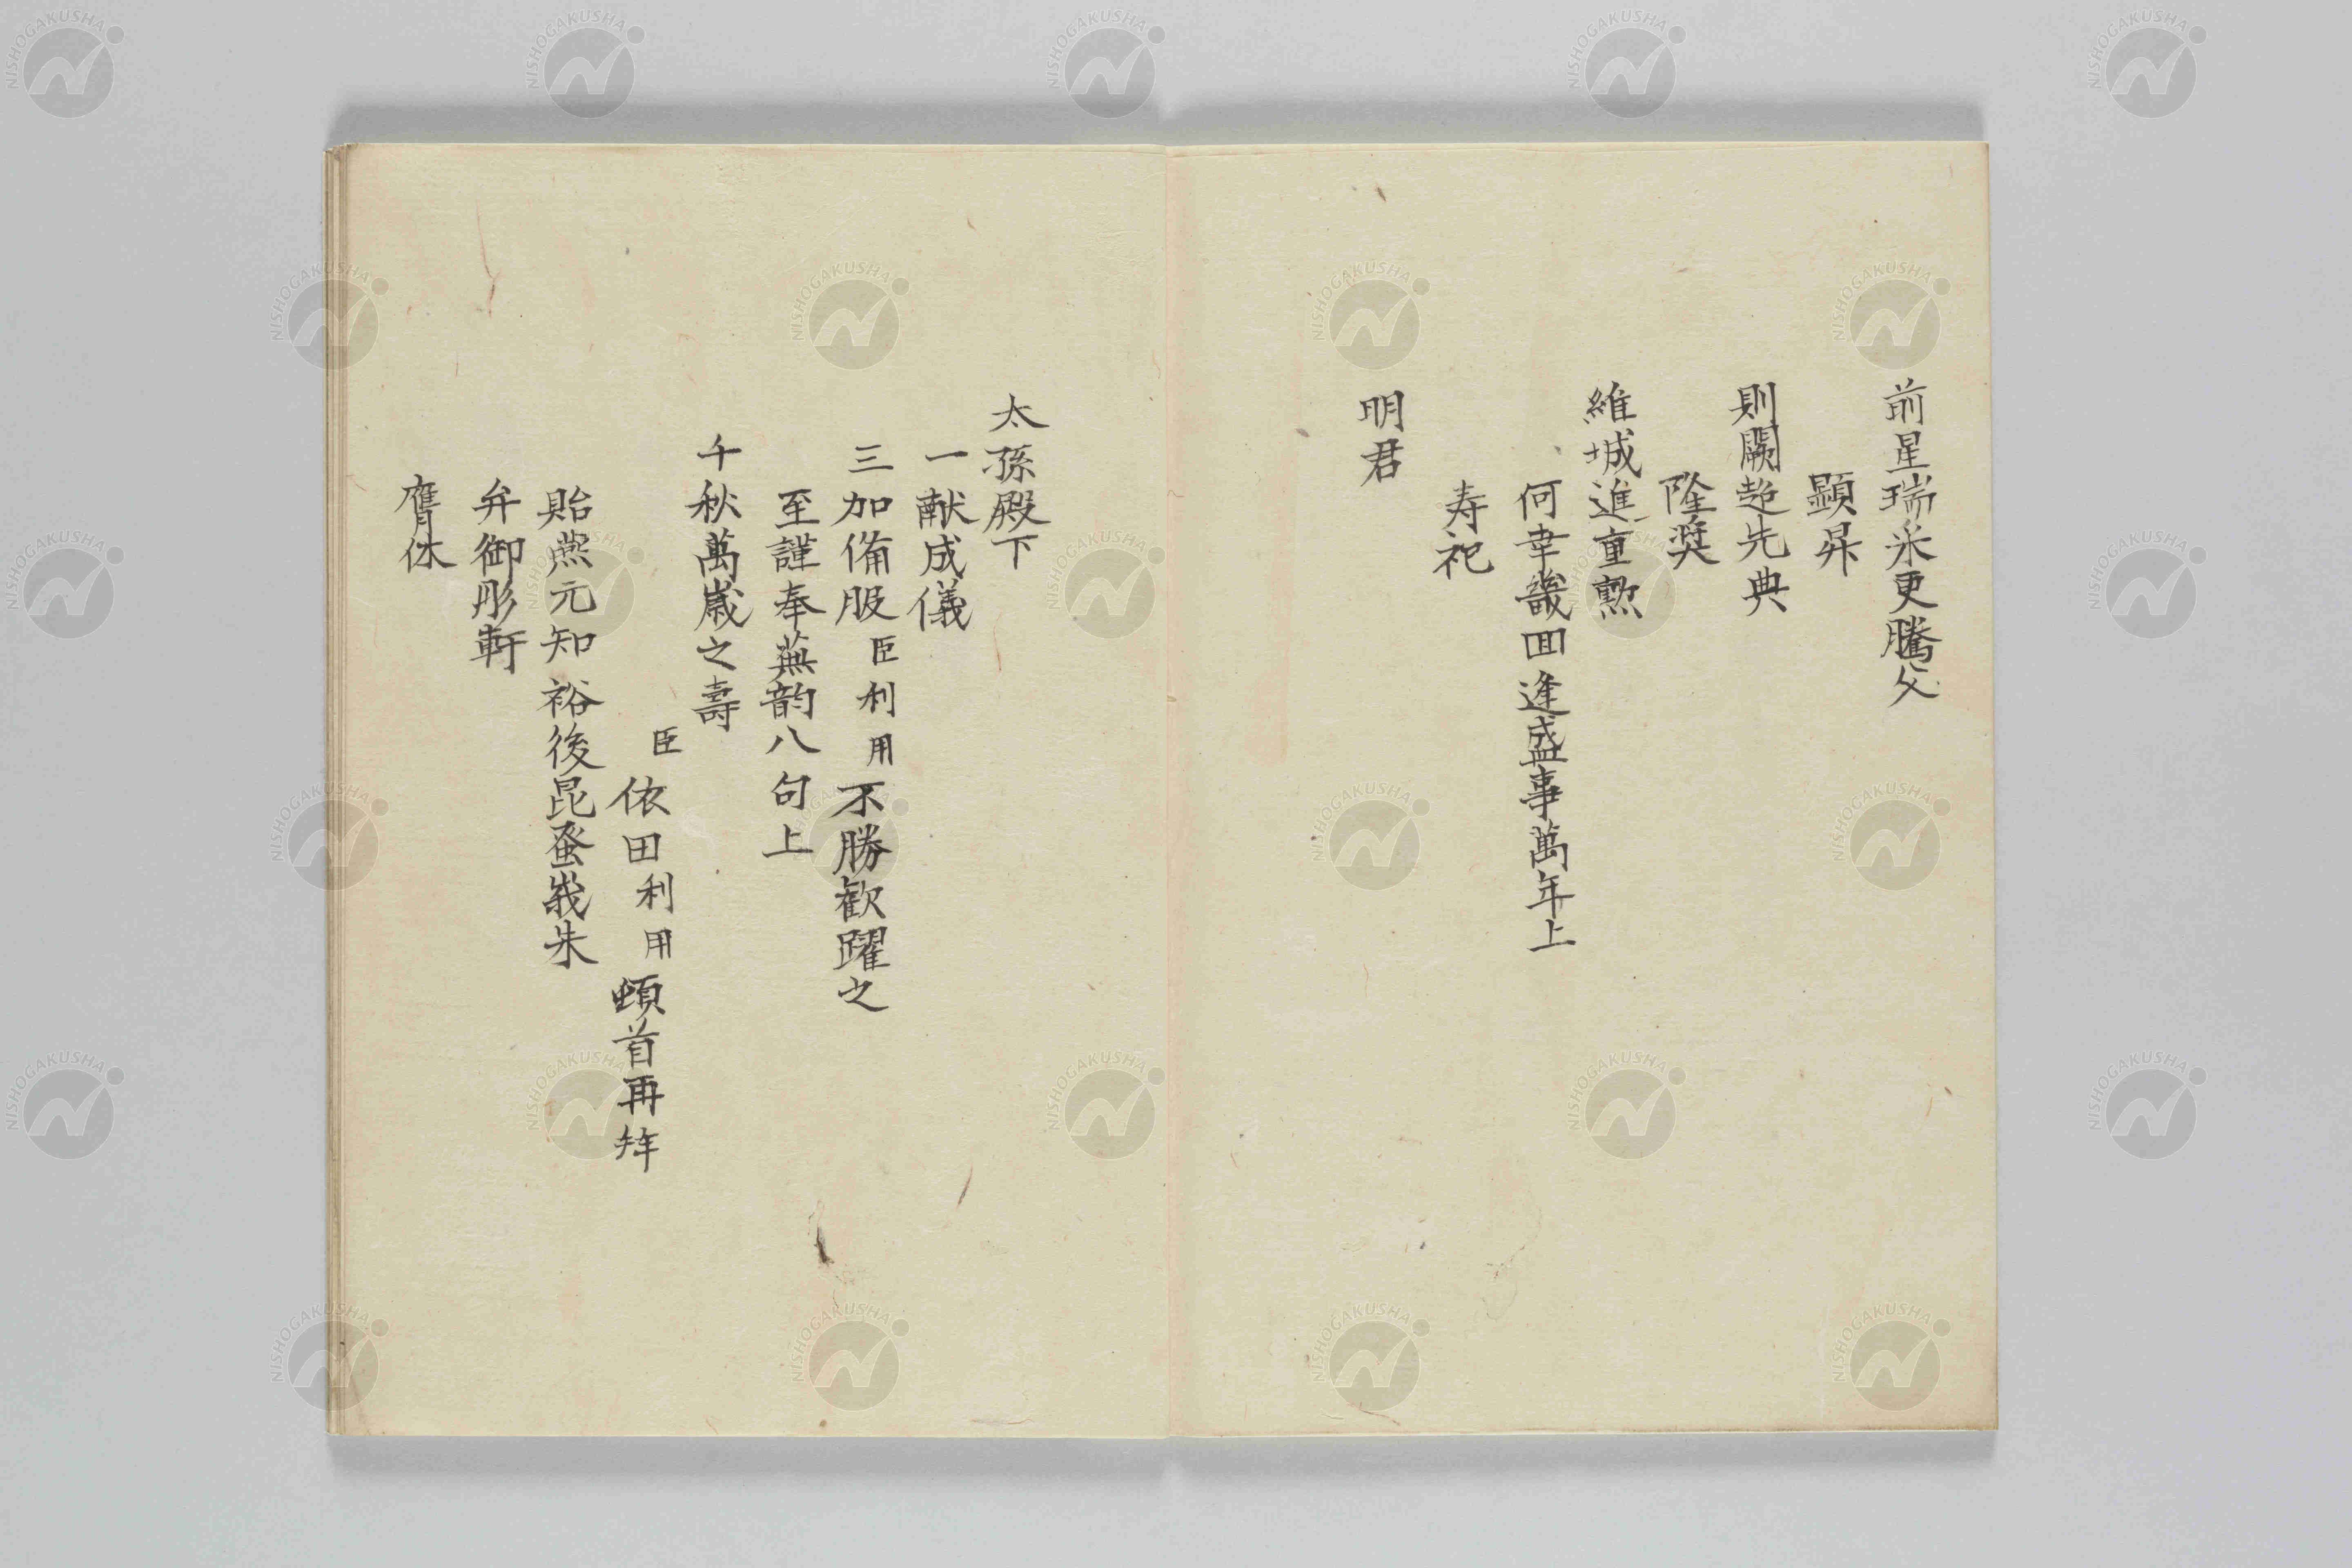 前星瑞采更騰父
顕昇
則闕趂先典
隆奨
維城進重勲
何幸幾回逢盛事萬年上
寿祀
明君
太孫殿下
一献成儀
三加備服臣利用不勝歓躍之
至謹奉蕪韵八句上
千秋萬歳之壽
臣依田利用頓首再拝
貽燕元知裕後昆蚤峩朱
弁御彤軒
膺休
NISHOGAKUSHA